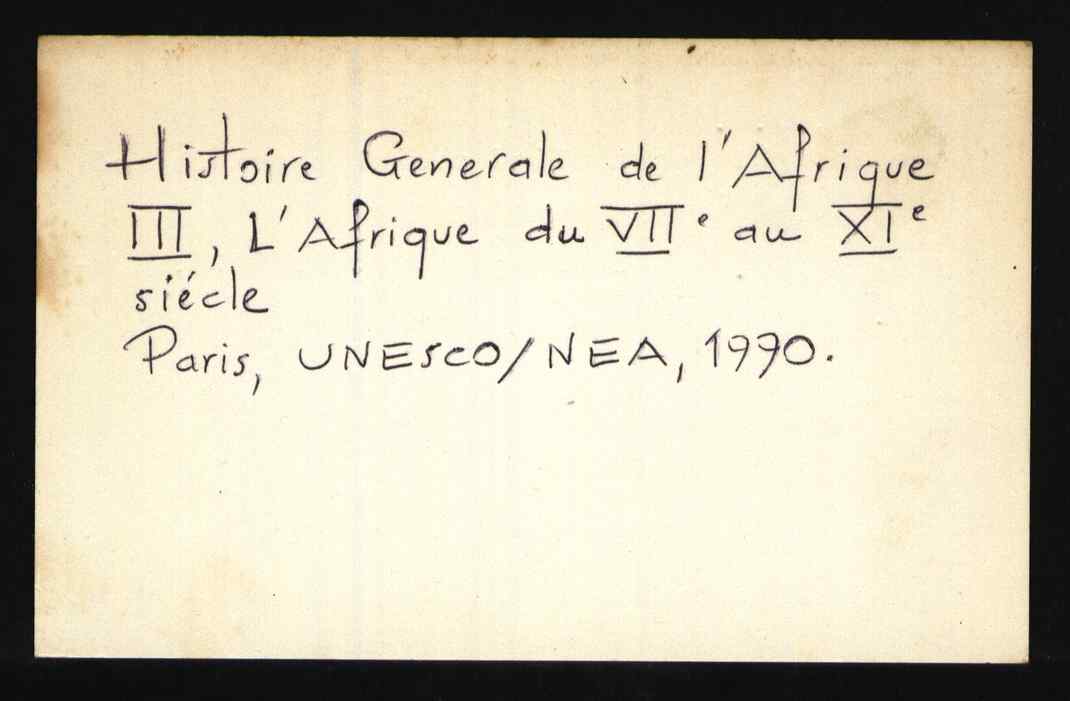 Histoire Generale de l'Afrique
III, L'Afrique du VIIe au XIe
siécle
Paris, UNESCO/NEA, 1990.